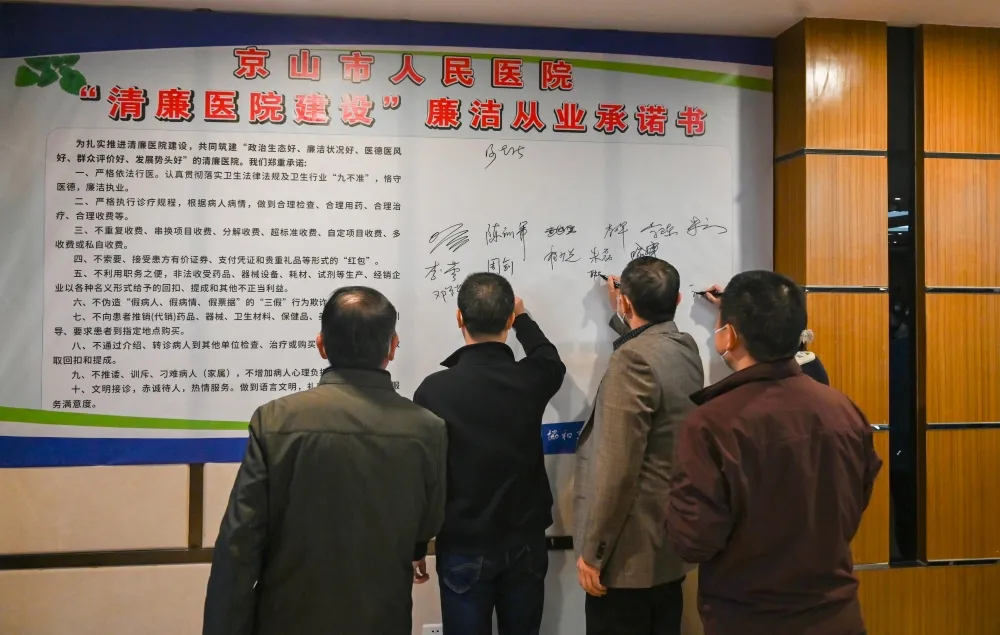 京山市人民医院
“清廉医院建设”廉洁从业承诺书
为扎实推进清廉医院建设，共同筑建“政治生态好、廉洁状况好、医德医风
好、群众评价好、发展势头好”的清廉医院。我们郑重承诺：
一、严格依法行医。认真贯彻落实卫生法律法规及卫生行业“九不准”，恪守
医德，廉洁执业。
二、严格执行诊疗规程，根据病人病情，做到合理检查、合理用药、合理治
疗、合理收费等。
三、不重复收费、串换项目收费、分解收费、超标准收费、自定项目收费、多
收费或私自收费。
四、不索要、接受患方有价证券、支付凭证和贵重礼品等形式的“红包”。
五、不利用职务之便，非法收受药品、器械设备、耗材、试剂等生产、经销企
业以各种名义形式给予的回扣、提成和其他不正当利益。
六、不伪造“假病人、假病情、假票据”的“三假”行为欺诈
七、不向患者推销(代销)药品、器械、卫生材料、保健品、
导、要求患者到指定地点购买。
八、不通过介绍、转诊病人到其他单位检查、治疗或购买
取回扣和提成。
九、不推诿、训斥、刁难病人（家属），不增加病人心理负担
十、文明接诊，赤诚待人，热情服务。做到语言文明，
务满意度。
服
陈训军
李雪 周剑 朱磊
协和